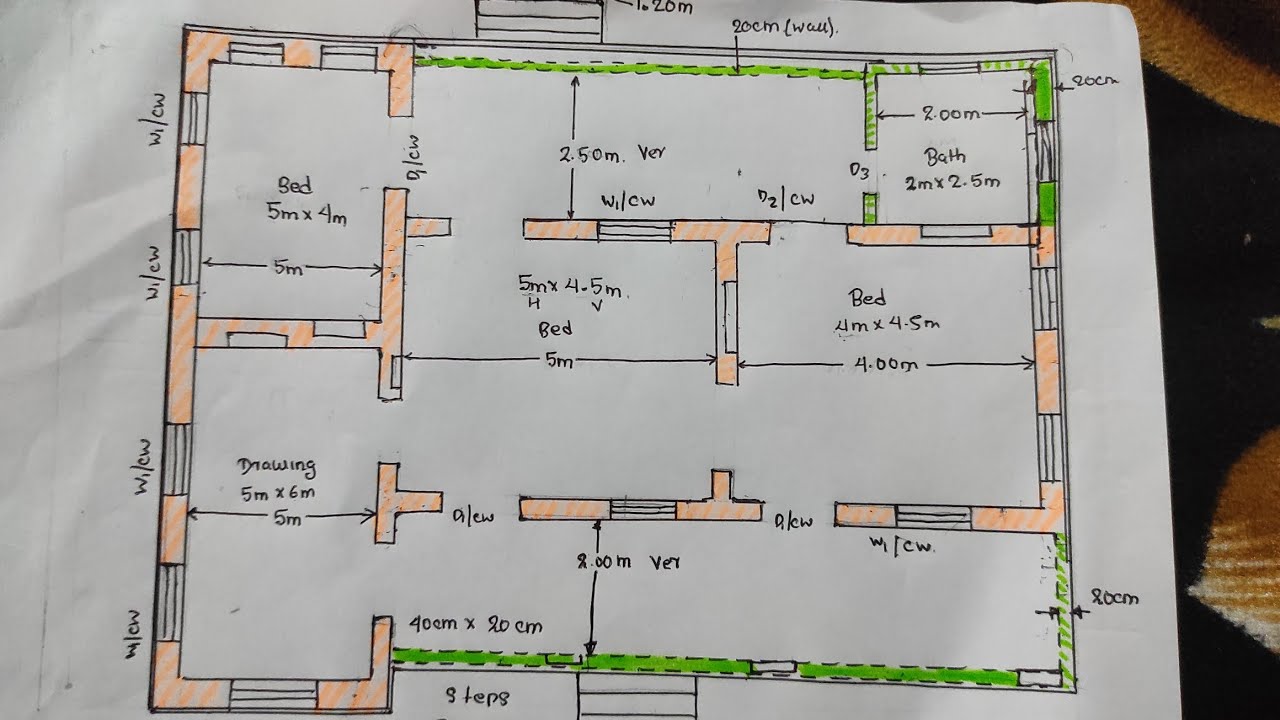 1.20m
20cm (wall).
20cm
W1/CW
D1/CW
2.50m. Ver
W1/CW
D2/CW
D3
2.00m
Bath
2m x 2.5m
Bed
5m x 4m
5m
W1/CW
5m x 4.5m
H V
Bed
5m
Bed
4m x 4.5m
4.00m
W1/CW
Drawing
5m x 6m
5m
D1/CW
D1/CW
W1/CW.
2.00m Ver
20cm
W1/CW
40cm x 20cm
Steps